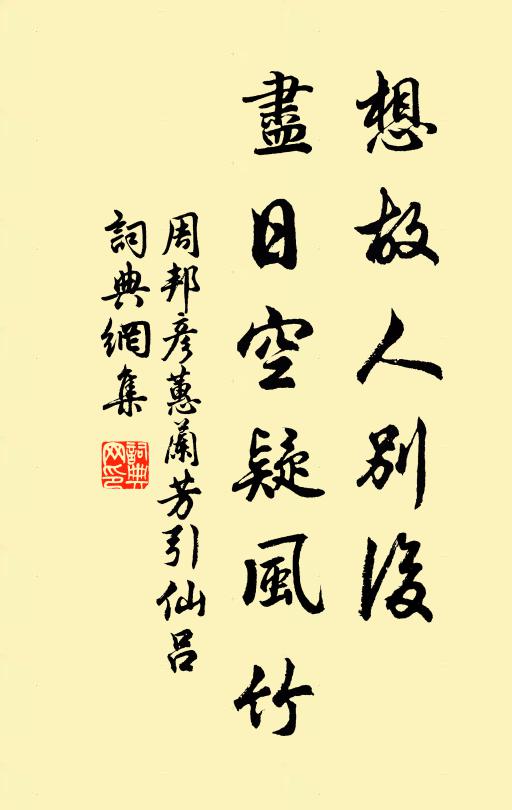 想故人別後
盡日空疑風竹
周邦彥蕙蘭芳引仙呂
詞典網集
詞典網印